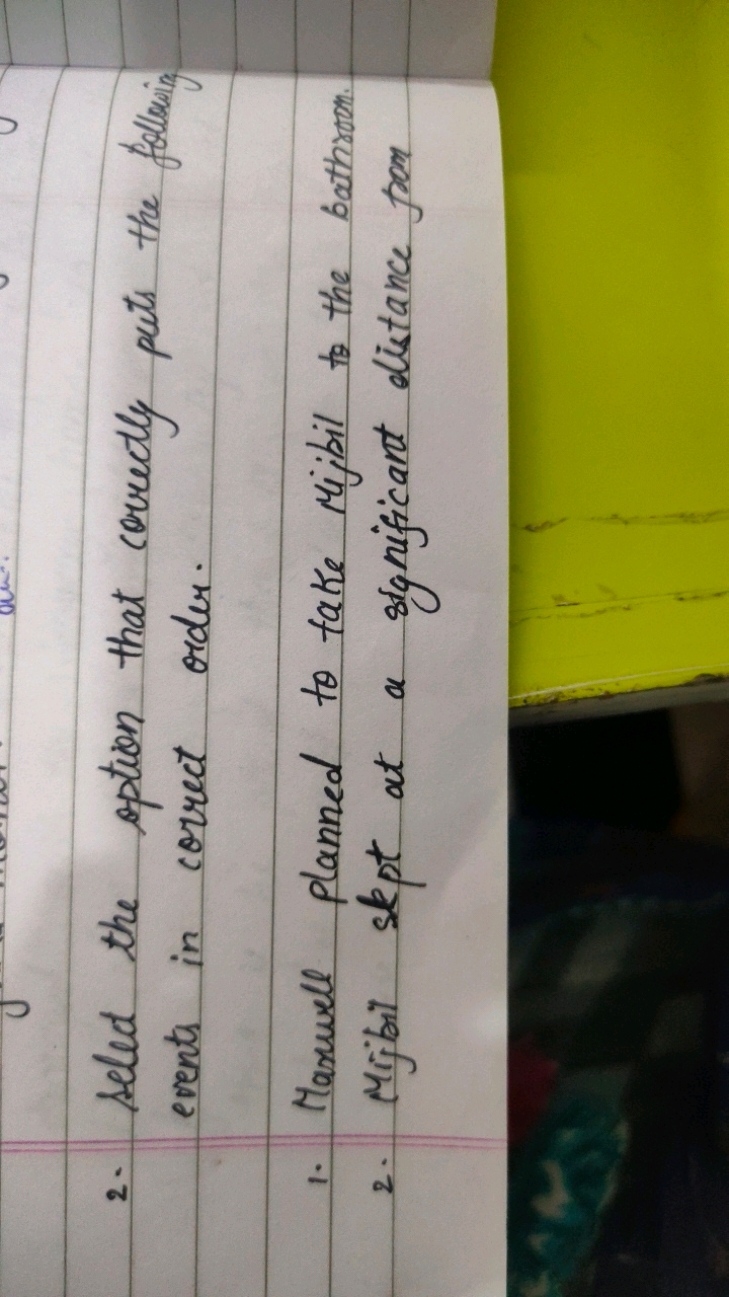 2. Select the option that correctly puts the following
events in correct order.
1. Maxwell planned to take Mijbil to the bathroom.
2. Mijbil slept at a significant distance from